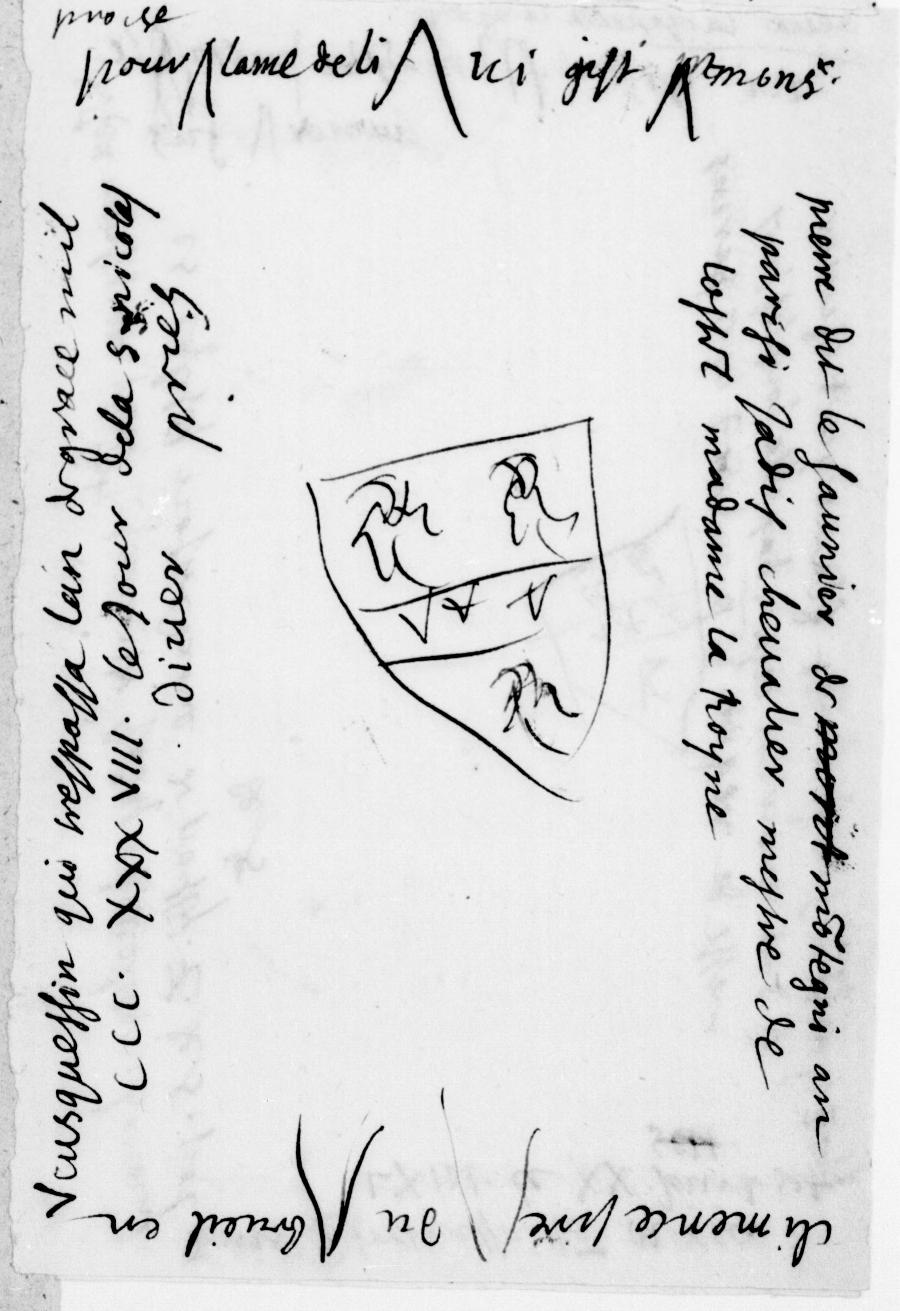 pour lame de li ici gist mons.r
pierre dit le Jaunier de mõtegni au
parisi Jadis cheualier mestre de
lostel madame la Royne
climence sire du brueil en
Veusquessin qui trespassa lan de grace mil
CCC. XXXVIII. le Jour de la S nicolas
diuer priez